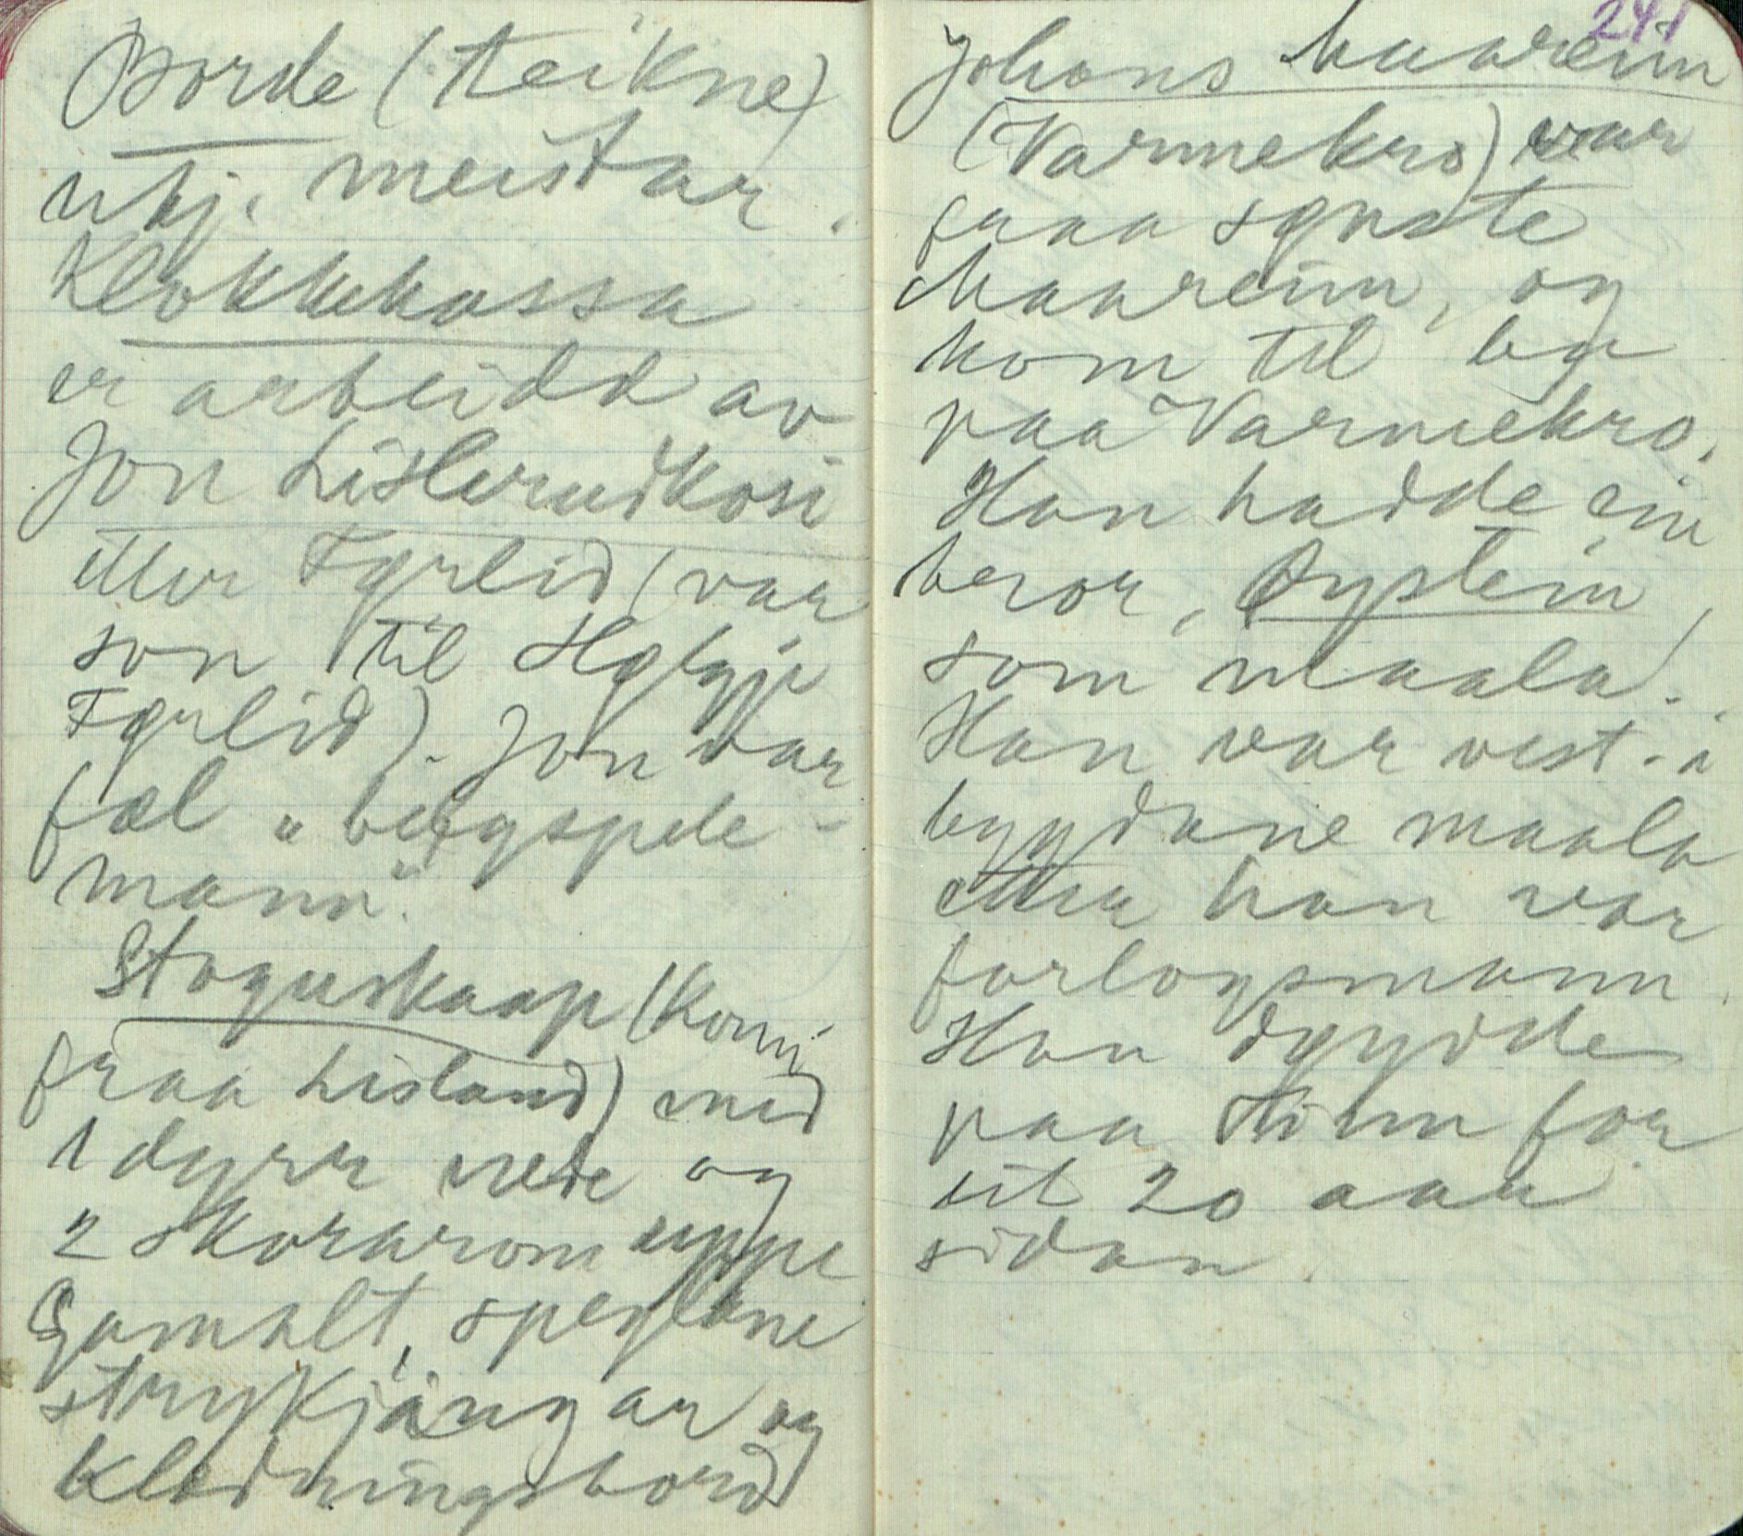 Borde (teikne)
ukj. meistar.
Klokkekassa
er arbeidd av
Jon Lislerudkosi
itter Tyrlid (var
son til Hølgje
Tyrlid). Jon var
fæl "bergspele-
mann".
Stoguskaap (Komi
fraa Lisland) med
1 dyrr nede og
2 skorarom uppe
Gamalt, speglane
strykjingar og
Klædningsbord
241
Johans Maareim
(Varmekro) var
fraa sørste
Maareim, og
kom til by
paa Varmekro.
Han hadde ein
beror, Øystein,
som maala.
Han var vest-i
bygdane maala
etter han var
forlogsmann.
Han døydde
paa Tinn for
eit 20 aar
sidan.